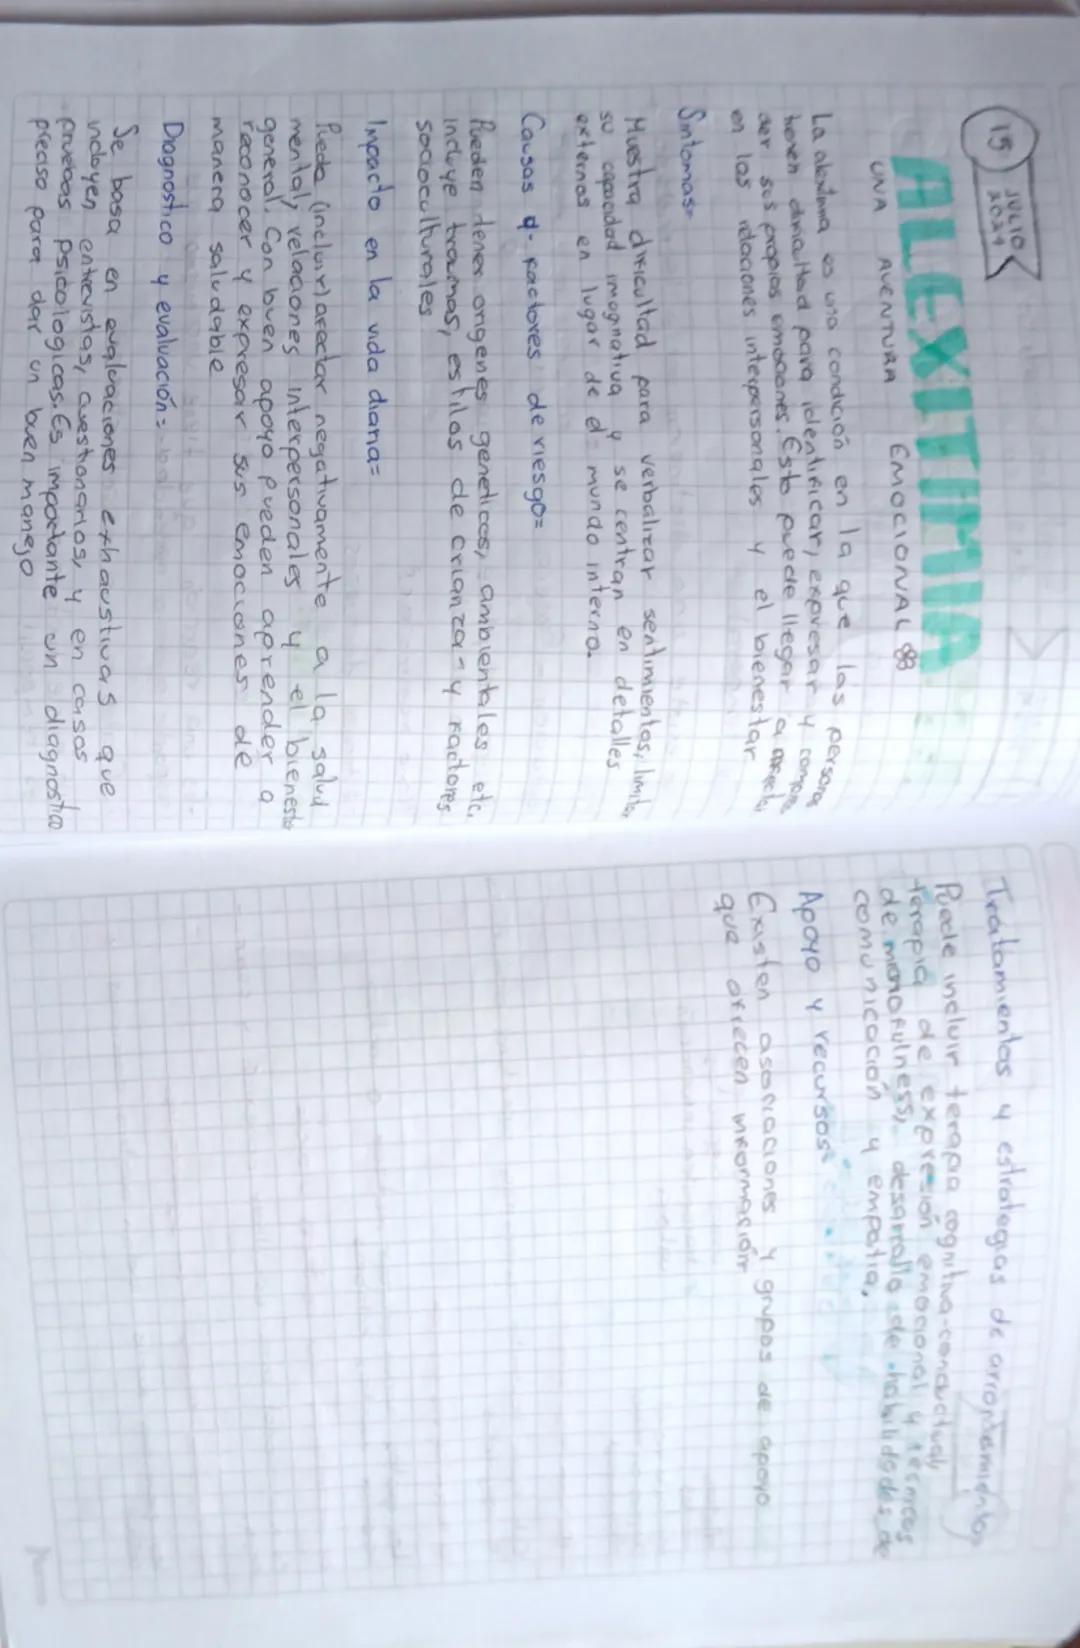 15 JULIO
2024
ALEXITIMIA
UNA AVENTURA EMOCIONAL
La alextimia es una condición en la que las persona
tienen dificultad para identificar, expresar y compre
der sus propias emociones. Esto puede llegar a afectar
en las relaciones interpersonales y el bienestar
Sintomas=
Muestra dificultad para verbalizar sentimientos, limitar
su capacidad imaginativa y se centran en detalles
externos en lugar de el mundo interno.
Causas y factores de riesgo=
Pueden tener origenes geneticos, ambientales etc.
incluye traumas, estilos de crianza y factores
socioculturales
Impacto en la vida diaria=
Puede (incluir) afectar negativamente a la salud
mental, relaciones interpersonales y el bienestar
general. Con buen apoyo pueden aprender a
reconocer y expresar sus emociones de
manera saludable
Diagnostico y evaluación=
Se basa en evaluaciones exhaustivas que
incluyen entrevistas, cuestionarios, y en casos
pruebas psicologicas. Es importante un diagnostico
preciso para dar un buen manejo
Tratamientos y estrategias de
Puede incluir terapia cognitiva-conductual,
terapia de expresión emocional y tecnicas
de mindfulness, desarrollo de habilidades de
comunicación y empatia.
Apoyo y recursos=
Existen asociaciones y grupos de apoyo
que ofrecen información